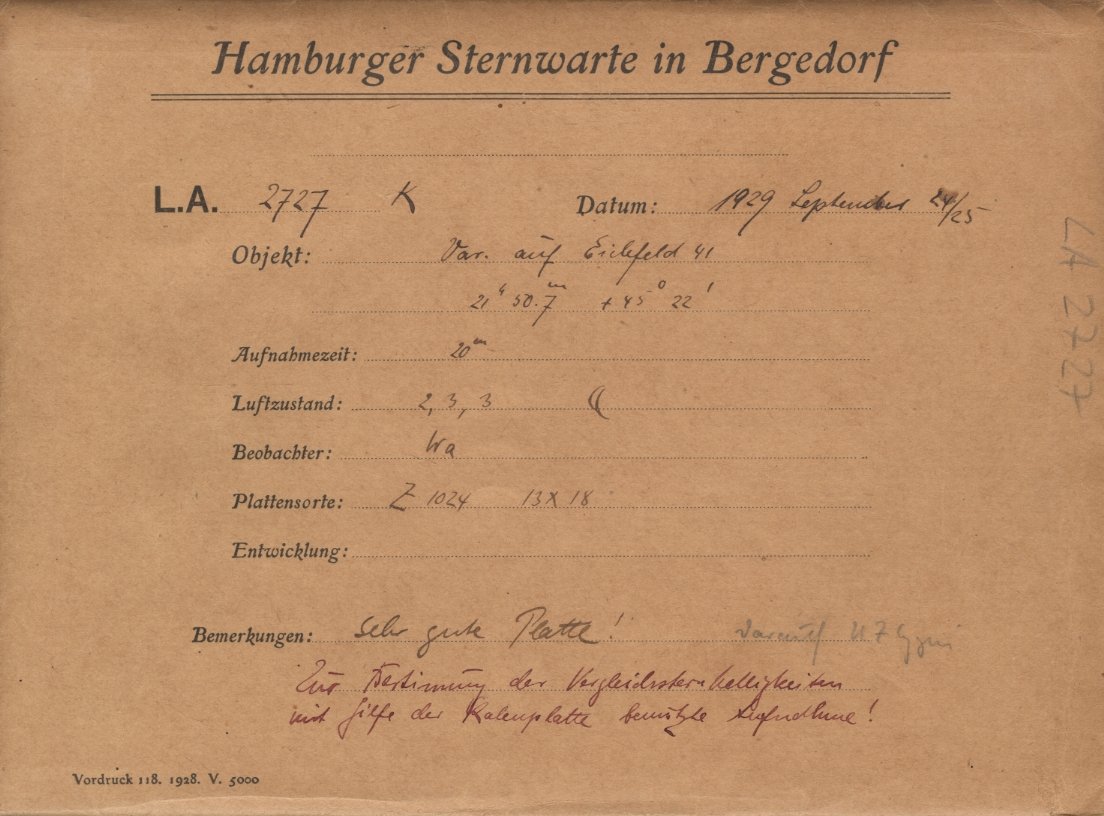 Hamburger Sternwarte in Bergedorf
L.A. 2727 K Datum: 1929 September 24/25
Objekt: Var. auf Eichfeld 41
21ʰ 50.7ᵐ + 45° 22'
Aufnahmezeit: 20ᵐ
Luftzustand: 2, 3, 3 ☾
Beobachter: Wa
Plattensorte: Z 1024 13 X 18
Entwicklung:
Bemerkungen: Sehr gute Platte! darauf Cygni
Zur Bestimmung der Vergleichssternhelligkeiten
mit Hilfe der Skalenplatte benutzte Aufnahme!
Vordruck 118. 1928. V. 5000
LA 2727